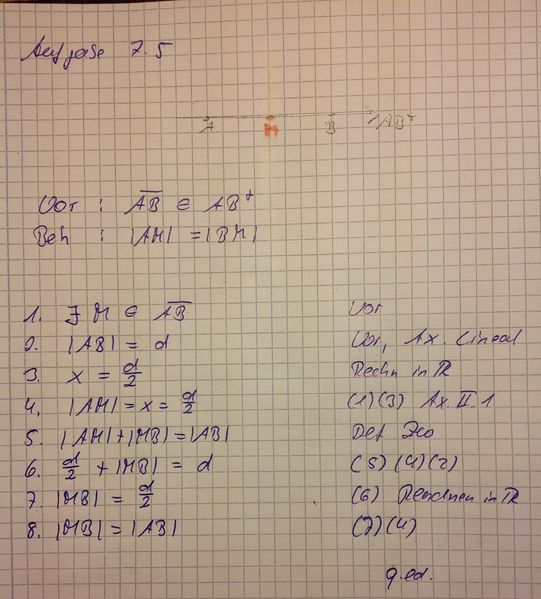 Aufgabe 7.5
A M B AB⁺
Vor : A̅B̅ ∈ AB⁺
Beh : |AM| = |BM|
1. ∃ M ∈ A̅B̅ Vor
2. |AB| = d Vor, Ax. Lineal
3. x = d/2 Rechn in ℝ
4. |AM| = x = d/2 (1)(3) Ax. II.1
5. |AM|+|MB| = |AB| Def Zw
6. d/2 + |MB| = d (5)(4)(2)
7. |MB| = d/2 (6) Rechnen in ℝ
8. |MB| = |AB| (7)(4)
q.ed.